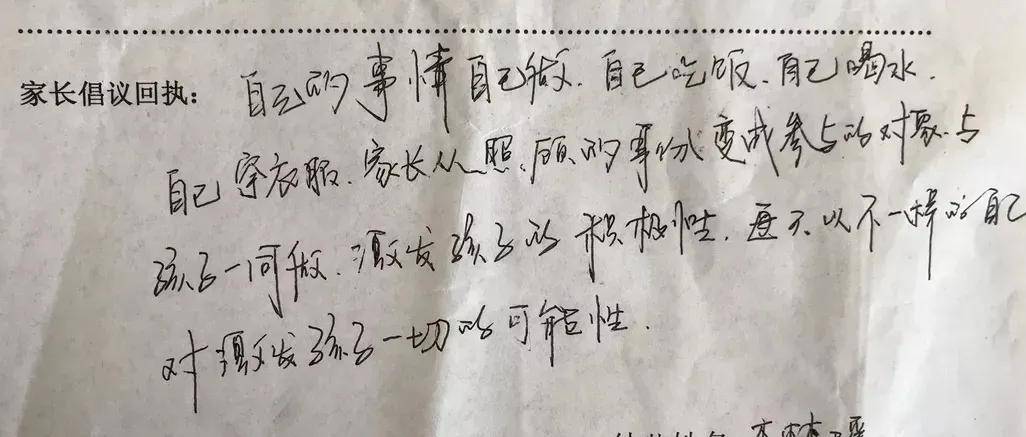 家长倡议回执: 自己的事情自己做.自己吃饭.自己喝水.
自己穿衣服.家长从照顾的身份变成参与的对象.与
孩子一同做.激发孩子的积极性.每天以不一样的自己
对激发孩子一切的可能性.